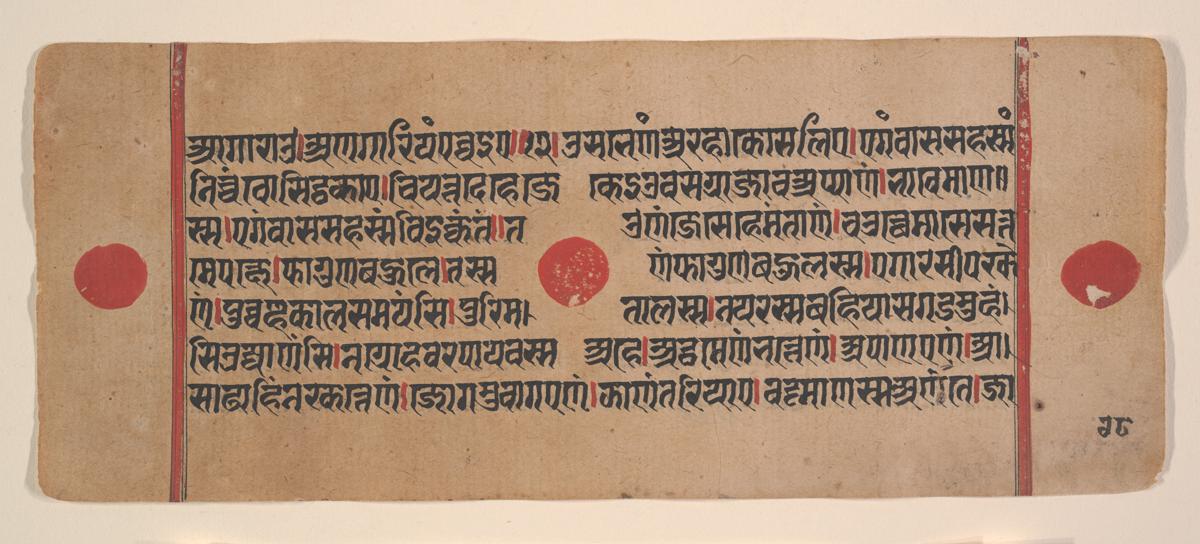 आगाराउ।अणगारियंपव्वइए॥१२।उसभेणंअरहाकोसलिए।एगंवाससहस्सं
निच्चंवोसिट्ठकाए।चियत्तदेहेजे केइउवसग्गाजावअप्पाणं।भावेमाण॥
स्स।एगंवाससहस्संविइक्कंतं॥त उणंजेसेहेमंताणं।चउत्थेमासेसत्त
मेपक्खे।फागुणबहुले।तस्स णंफागुणबहुलस्स।एगारसीपरके
णं।पुव्वण्हकालसमयंसि।पुरिम। तालस्स।नयरस्सबहियासगडमुहं।
सिउज्जाणंसि।नग्गोहवरपायवस्स अहे।अट्ठमेणंभत्तेणं।अपाणएणं।आ॥
साढाहिंनरकत्तेणं।जोगमुवागएणं।झाणंतरियाए।वट्टमाणस्सअणंते।जा